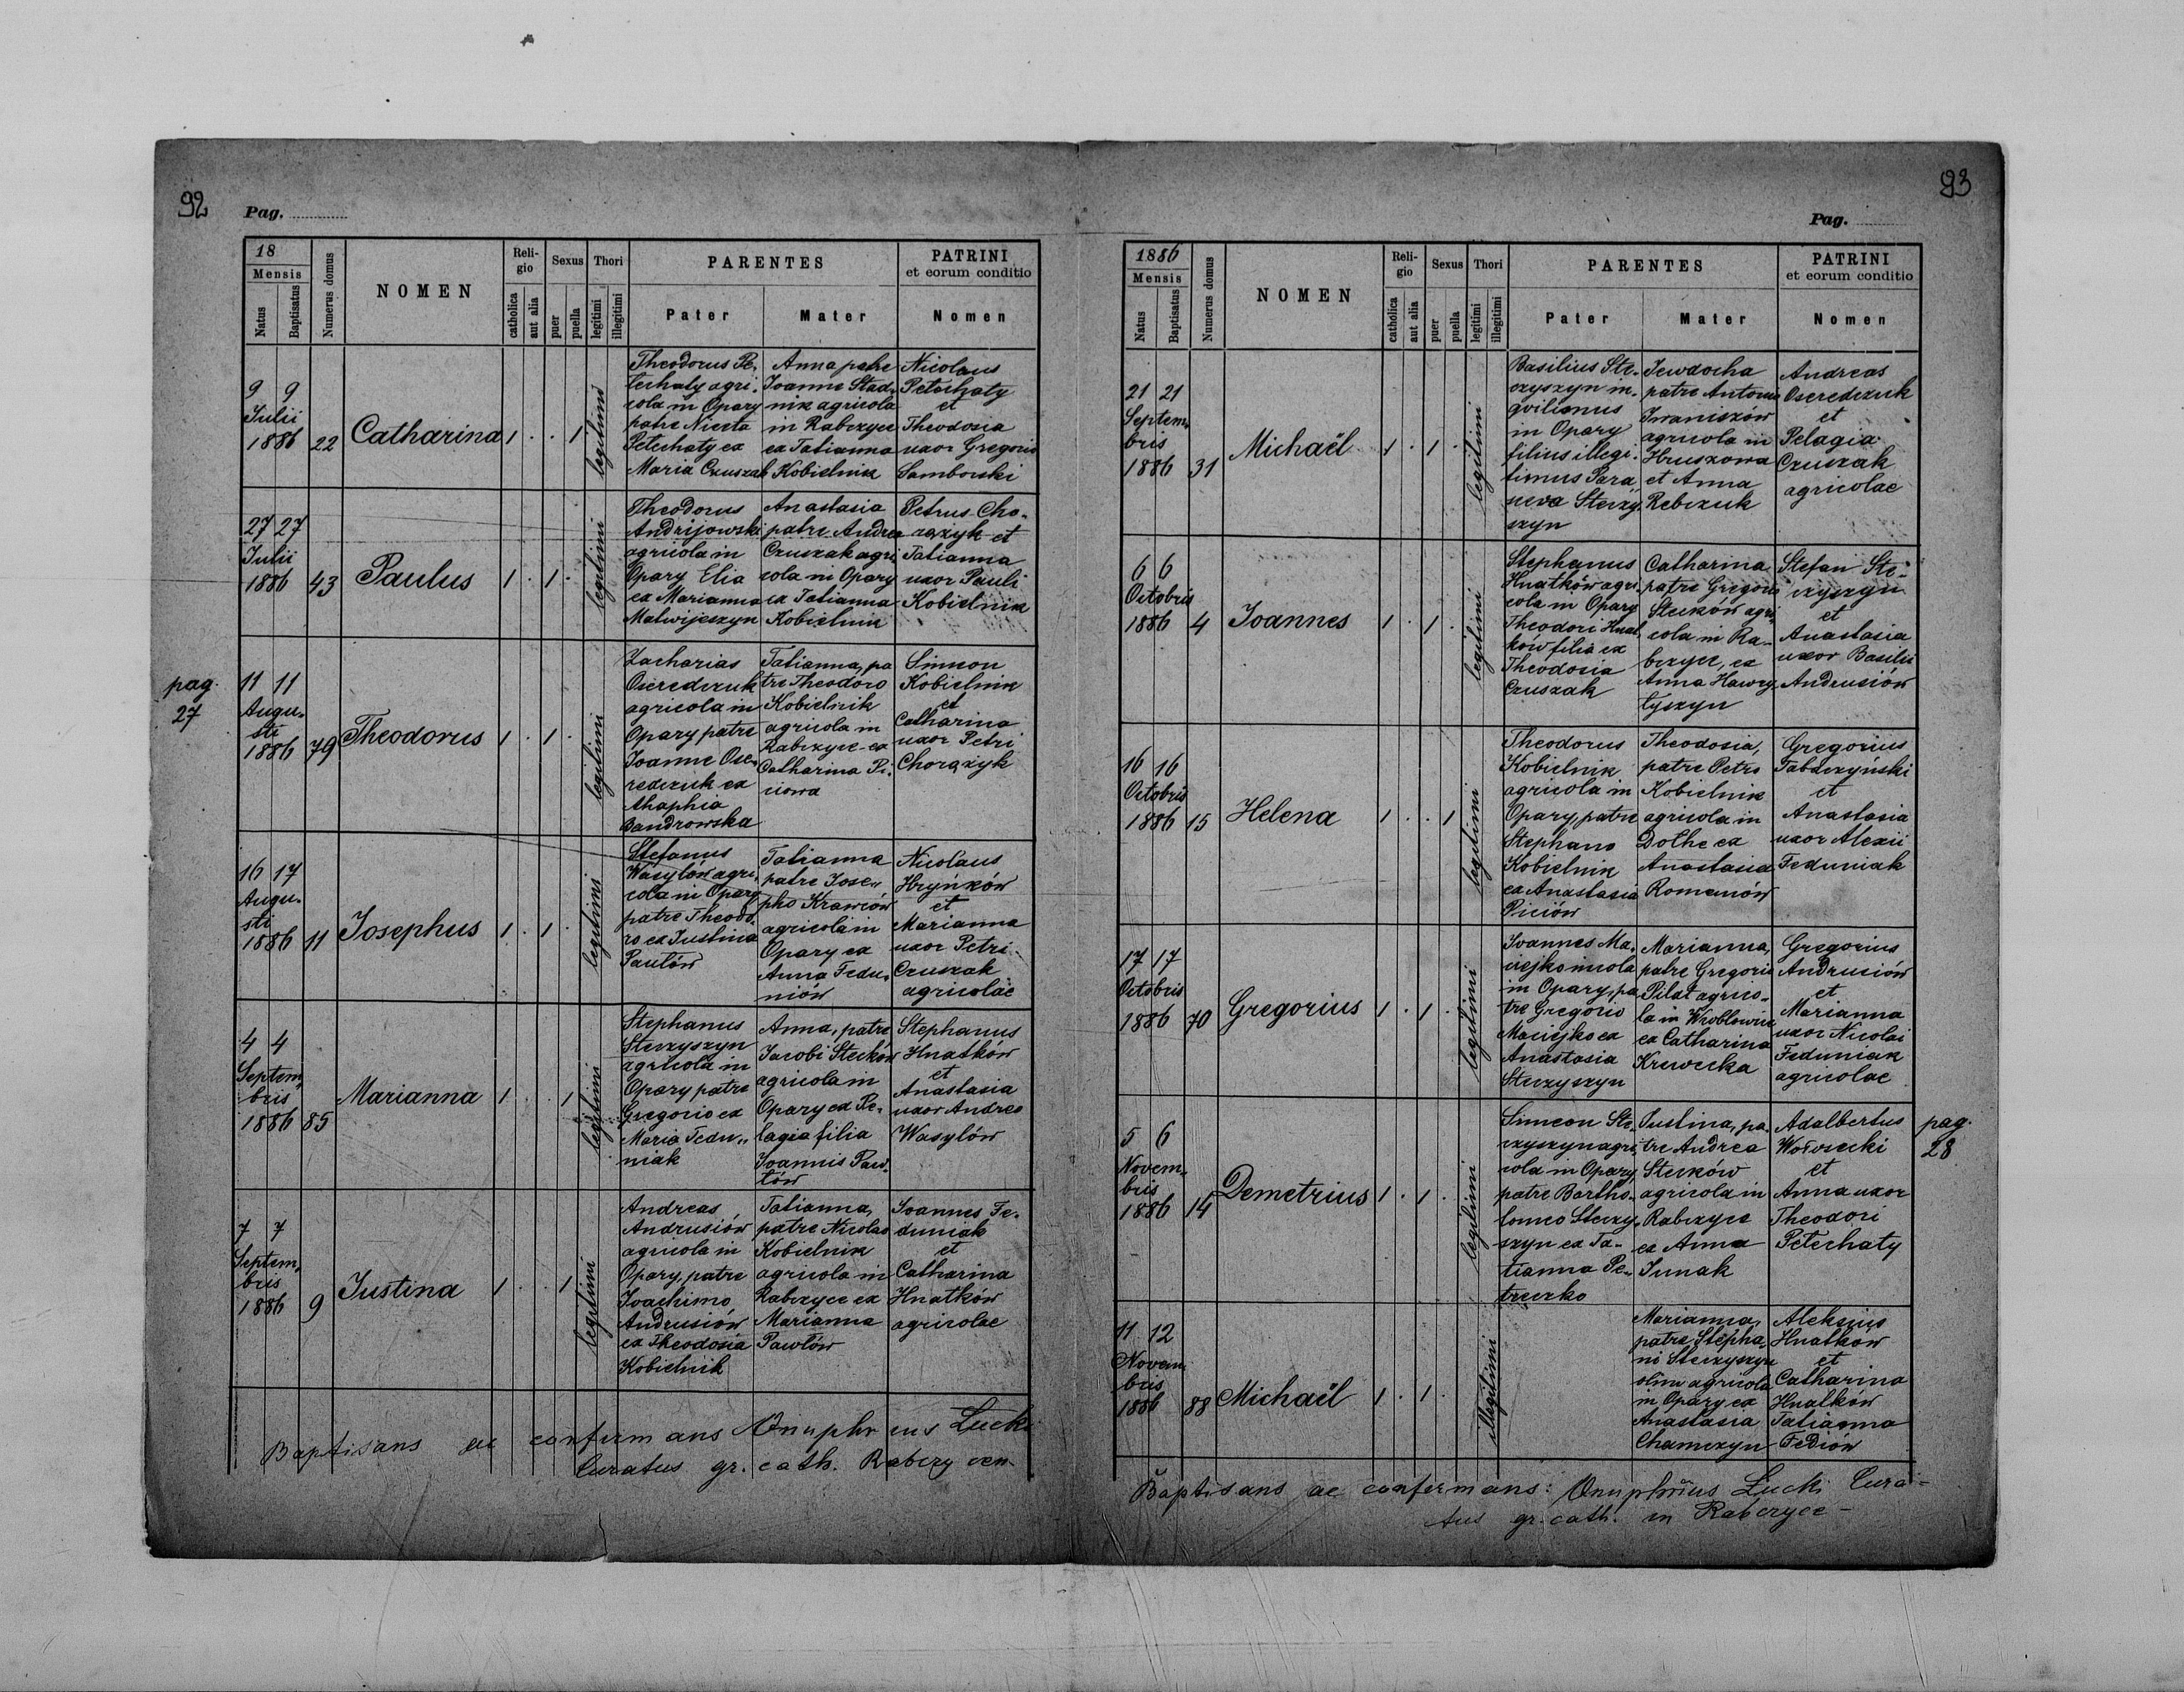 92
Pag.
18
Mensis
Natus
Baptisatus
Numerus domus
NOMEN
Religio
catholica
aut alia
Sexus
puer
puella
Thori
legitimi
illegitimi
PARENTES
Pater
Mater
PATRINI
et eorum conditio
Nomen
9 9
Julii
1886
22
Catharina
1 . . 1
legitimi
Theodorus Pe-
techaty agri-
cola in Opary
patre Niceta
Petechaty ex
Maria Czuszak
Anna patre
Joanne Stad-
nik agricola
in Rabczyce
ex Tatianna
Kobielnik
Nicolaus
Petechaty
et
Theodosia
uxor Gregorii
Samborski
27 27
Julii
1886
43
Paulus
1 . 1 .
legitimi
Theodorus
Andrijowski
agricola in
Opary Elia
ex Marianna
Matwijeszyn
Anastasia
patre Andrea
Czuszak agri
cola in Opary
ex Tatianna
Kobielnik
Petrus Cho-
rążyk et
Tatianna
uxor Pauli
Kobielnik
pag.
27
11 11
Augu-
sti
1886
79
Theodorus
1 . 1 .
legitimi
Zacharias
Oseredczuk
agricola in
Opary patre
Joanne Ose-
redczuk ex
Ahaphia
Bandrowska
Tatianna, pa
tre Theodoro
Kobielnik
agricola in
Rabczyce ex
Catharina Pi-
ciowa
Simeon
Kobielnik
et
Catharina
uxor Petri
Chorążyk
16 17
Augu-
sti
1886
11
Josephus
1 . 1 .
legitimi
Stefanus
Wasylów agri-
cola in Opary
patre Theodo-
ro ex Justina
Pawlów
Tatianna
patre Jose-
pho Krawców
agricola in
Opary ex
Anna Fedu-
niów
Nicolaus
Hryńków
et
Marianna
uxor Petri
Czuszak
agricolae
4 4
Septem-
bris
1886
85
Marianna
1 . . 1
legitimi
Stephanus
Steczyszyn
agricola in
Opary patre
Gregorio ex
Maria Fedu-
niak
Anna, patre
Jacobi Steców
agricola in
Opary ex Pe-
lagia filia
Joannis Paw-
łów
Stephanus
Hnatków
et
Anastasia
uxor Andrea
Wasylów
7 7
Septem-
bris
1886
9
Justina
1 . . 1
legitimi
Andreas
Andrusiów
agricola in
Opary, patre
Joachimo
Andrusiów
ex Theodosia
Kobielnik
Tatianna,
patre Nicolao
Kobielnik
agricola in
Rabczyce ex
Marianna
Pawłów
Joannes Fe-
duniak
et
Catharina
Hnatków
agricolae
Baptisans ac confirmans Onuphrius Lucki
Curatus gr. cath. Rabczycen.
93
Pag.
1886
Mensis
Natus
Baptisatus
Numerus domus
NOMEN
Religio
catholica
aut alia
Sexus
puer
puella
Thori
legitimi
illegitimi
PARENTES
Pater
Mater
PATRINI
et eorum conditio
Nomen
21 21
Septem-
bris
1886
31
Michaël
1 . 1 .
legitimi
Basilius Ste-
czyszyn in-
quilinus
in Opary
filius illegi-
timus Para
sceva Steczy
szyn
Jewdocha
patre Antonio
Iwaniszów
agricola in
Hruszowa
et Anna
Rebczuk
Andreas
Oseredczuk
et
Pelagia
Czuszak
agricolae
6 6
Octobris
1886
4
Joannes
1 . 1 .
legitimi
Stephanus
Hnatków agri-
cola in Opary
Theodori Hnat
ków filia ex
Theodosia
Czuszak
Catharina
patre Gregorii
Stecków agri
cola in Ra-
bczyce, ex
Anna Hawry
tyszyn
Stefan Ste-
czyszyn
et
Anastasia
uxor Basilii
Andrusiow
16 16
Octobris
1886
15
Helena
1 . . 1
legitimi
Theodorus
Kobielnik
agricola in
Opary, patre
Stephano
Kobielnik
ex Anastasia
Piciów
Theodosia,
patre Petro
Kobielnik
agricola in
Dothe ex
Anastasia
Romanów
Gregorius
Tabaczyński
et
Anastasia
uxor Alexii
Feduniak
17 17
Octobris
1886
70
Gregorius
1 . 1 .
legitimi
Joannes Ma-
ciejko incola
in Opary, pa
tre Gregorio
Maciejko ex
Anastasia
Steczyszyn
Marianna,
patre Gregorio
Pilat agrico-
la in Wroblowice
ex Catharina
Krewecka
Gregorius
Andrusiów
et
Marianna
uxor Nicolai
Feduniak
agricolae
5 6
Novem-
bris
1886
14
Demetrius
1 . 1 .
legitimi
Simeon Ste-
czyszyn agri
cola in Opary,
patre Bartho-
lomeo Steczy-
szyn ex Ta-
tianna Pe-
treczko
Justina, pa-
tre Andrea
Stecków
agricola in
Rabczyce
ex Anna
Junak
Adalbertus
Wołosecki
et
Anna uxor
Theodori
Petechaty
pag.
28
11 12
Novem
bris
1886
88
Michaël
1 . 1 .
illegitimi
Marianna,
patre Stepha-
ni Steczyszyn
olim agricola
in Opary ex
Anastasia
Chamczyn
Aleksius
Hnatków
et
Catharina
Hnatków
Tatianna
Fediów
Baptisans ac confirmans: Onuphrius Lucki Cura-
tus gr. cath. in Rabczyce -